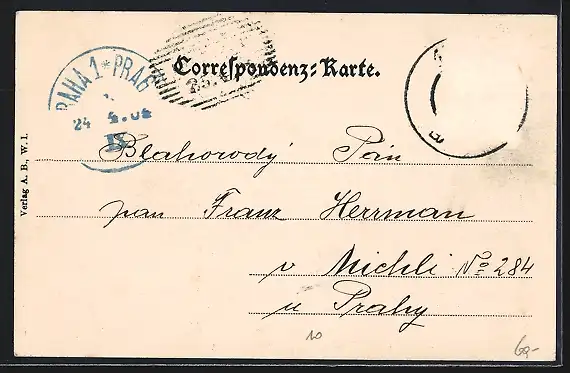 Correspondenz-Karte.
PRAHA 1 * PRAG
24
Verlag A. B., W. I.
Blahorodý Pán
pan Franz Herrman
v Michli No 284
u Prahy